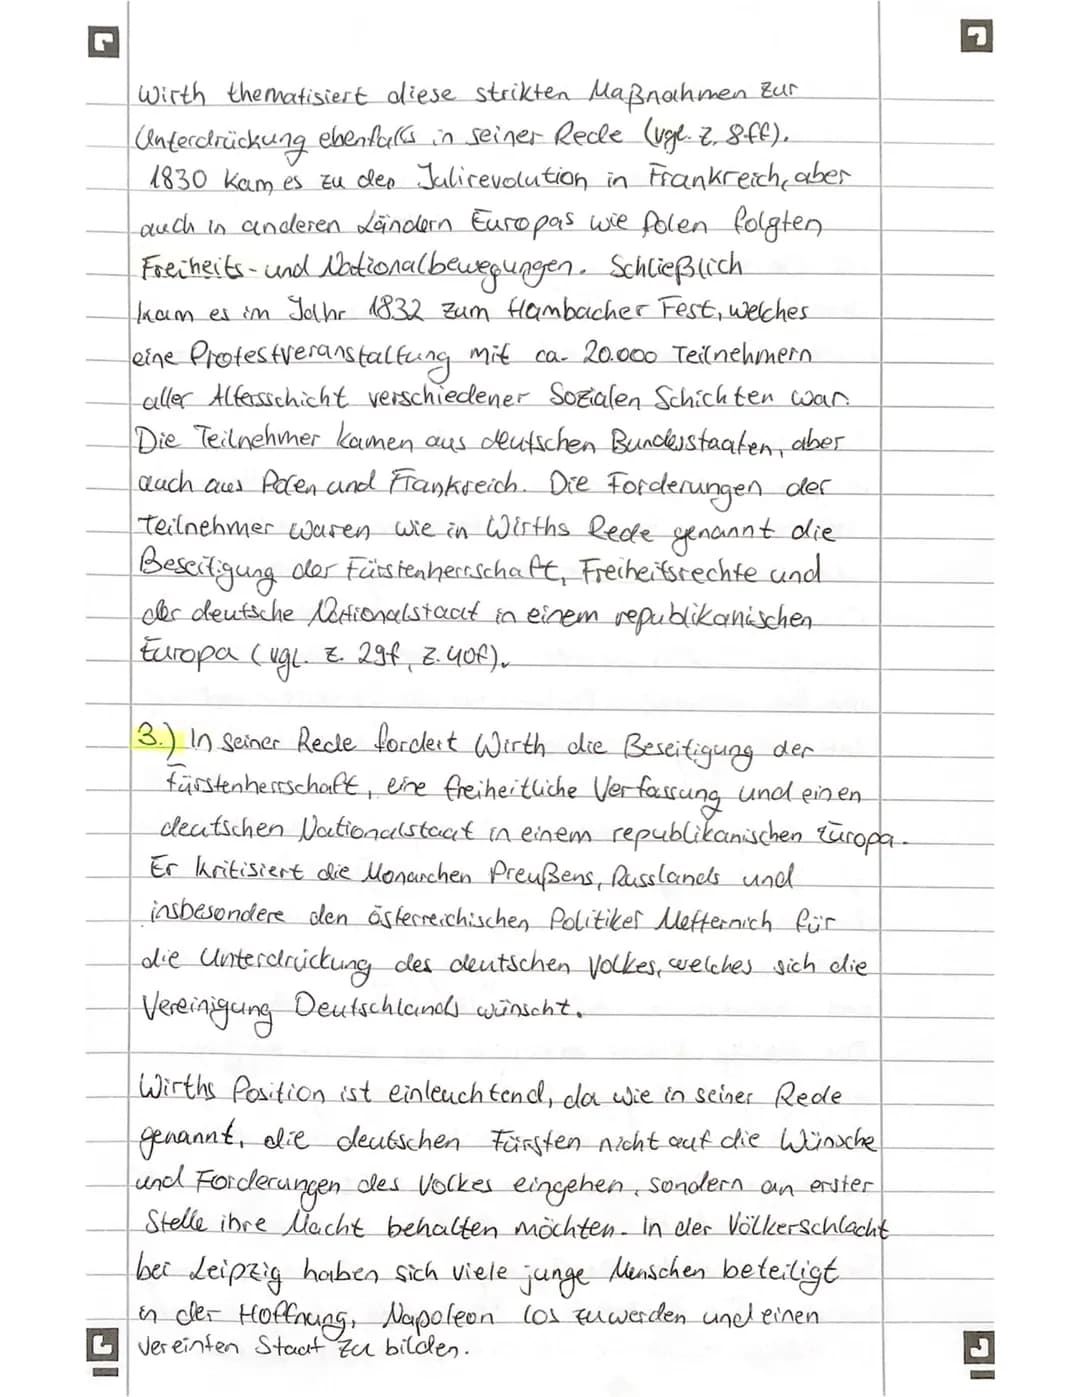 Wirth thematisiert diese strikten Maßnahmen zur
Unterdrückung ebenfalls in seiner Rede (vgl. Z. 8ff).
1830 kam es zu der Julirevolution in Frankreich, aber
auch in anderen Ländern Europas wie Polen folgten
Freiheits- und Nationalbewegungen. Schließlich
kam es im Jahr 1832 zum Hambacher Fest, welches
eine Protestveranstaltung mit ca. 20.000 Teilnehmern
aller Altersschicht verschiedener Sozialen Schichten war.
Die Teilnehmer kamen aus deutschen Bundesstaaten, aber
auch aus Polen und Frankreich. Die Forderungen der
Teilnehmer waren wie in Wirths Rede genannt die
Beseitigung der Fürstenherrschaft, Freiheitsrechte und
der deutsche Nationalstaat in einem republikanischen
Europa (vgl. Z. 29f, Z. 40f).
3.) In seiner Rede fordert Wirth die Beseitigung der
Fürstenherrschaft, eine freiheitliche Verfassung und einen
deutschen Nationalstaat in einem republikanischen Europa.
Er kritisiert die Monarchen Preußens, Russlands und
insbesondere den österreichischen Politiker Metternich für
die Unterdrückung des deutschen Volkes, welches sich die
Vereinigung Deutschlands wünscht.
Wirths Position ist einleuchtend, da wie in seiner Rede
genannt, die deutschen Fürsten nicht auf die Wünsche
und Forderungen des Volkes eingehen, sondern an erster
Stelle ihre Macht behalten möchten. In der Völkerschlacht
bei Leipzig haben sich viele junge Menschen beteiligt
in der Hoffnung, Napoleon los zu werden und einen
vereinten Staat zu bilden.